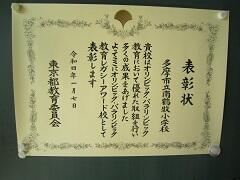 表彰状
多摩市立南鶴牧小学校
貴校はオリンピック・パラリンピック
教育において優れた取組を行い
多くの成果をあげました
よってここにオリンピック・パラリンピック
教育レガシーアワード校として
表彰します
令和四年一月七日
東京都教育委員会